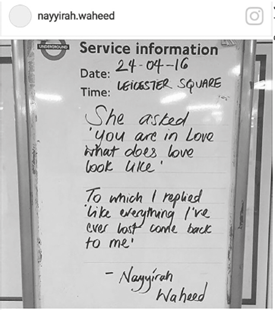 nayyirah.waheed
UNDERGROUND
Service information
Date: 24-04-16
Time: LEICESTER SQUARE
She asked
'you are in love
what does love
look like'
To which I replied
'like everything I've
ever lost come back
to me'
- Nayyirah
Waheed